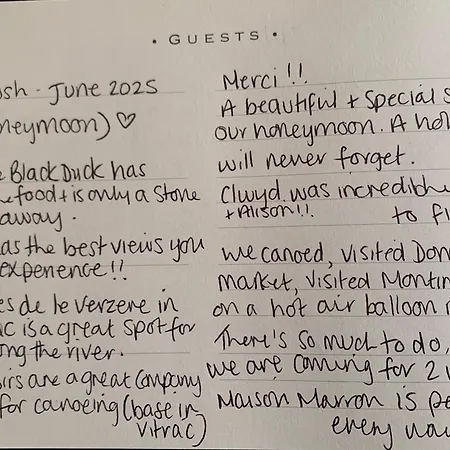 • GUESTS •
osh - June 2025
neymoon) ♡
Black Duck has
food + is only a stone
away.
as the best views you
experience!!
es de le verzere in
ac is a great spot for
ong the river.
irs are a great company
for canoeing (base in
vitrac)
Merci!!
A beautiful + special s
our honeymoon. A hol
will never forget.
Clwyd was incredible
+ Alison!!
to fi
we canoed, visited Dom
market, visited Montin
on a hot air balloon r
There's so much to do,
we are coming for 2 w
Maison Marron is pe
every wa